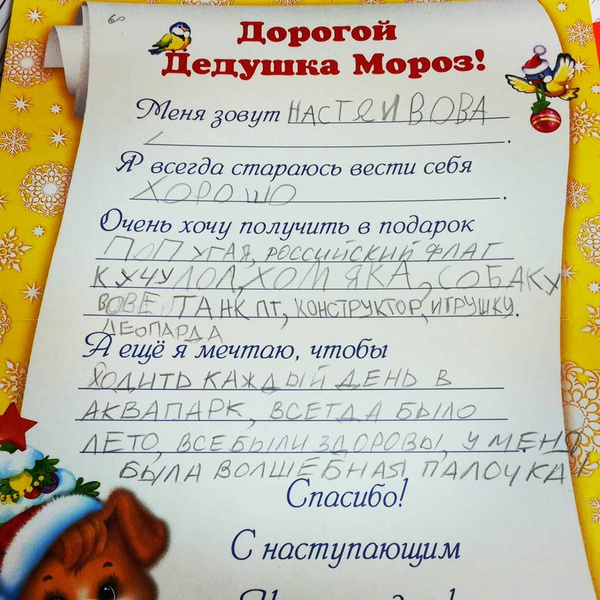 Дорогой
Дедушка Мороз!
Меня зовут НАСТЯ И ВОВА
Я всегда стараюсь вести себя
ХОРОШО
Очень хочу получить в подарок
ПОПУГАЯ, РОССИЙСКИЙ ФЛАГ
КУЧУ ЛОЛ, ХОМЯКА, СОБАКУ
ВОВЕ ТАНК ПТ, КОНСТРУКТОР, ИГРУШКУ.
ЛЕОПАРДА
А ещё я мечтаю, чтобы
ХОДИТЬ КАЖДЫЙ ДЕНЬ В
АКВАПАРК, ВСЕГДА БЫЛО
ЛЕТО, ВСЕ БЫЛИ ЗДОРОВЫ, У МЕНЯ
БЫЛА ВОЛШЕБНАЯ ПАЛОЧКА
Спасибо!
С наступающим